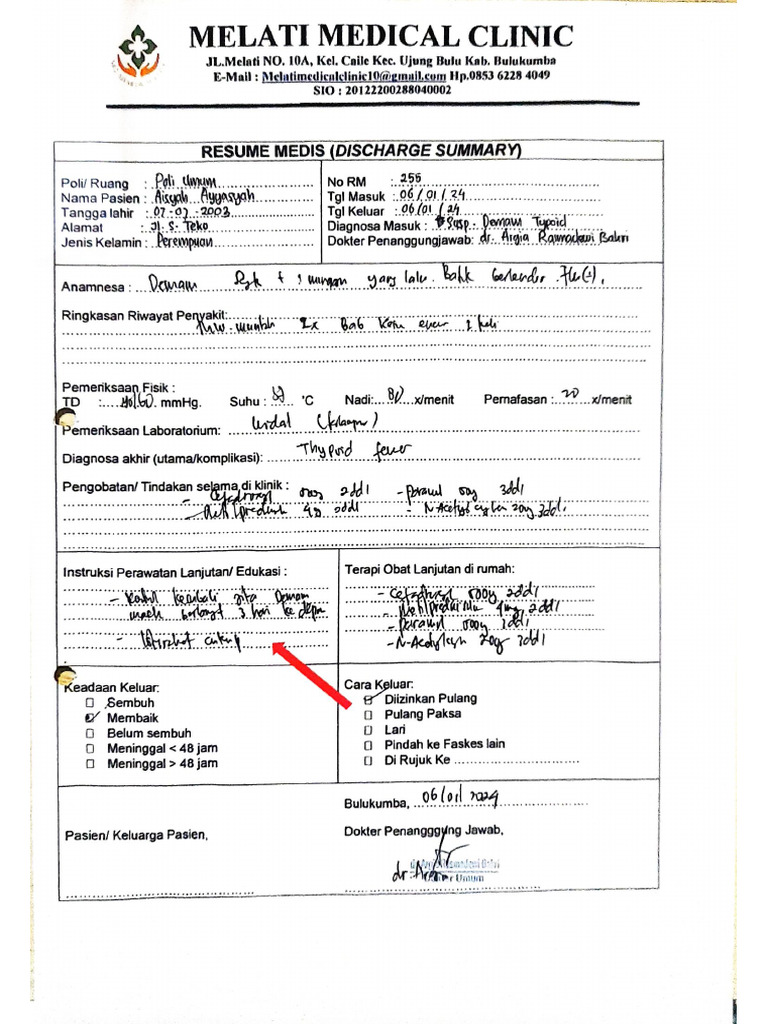 MELATI MEDICAL CLINIC
JL.Melati NO. 10A, Kel. Caile Kec. Ujung Bulu Kab. Bulukumba
E-Mail : Melatimedicalclinic10@gmail.com Hp.0853 6228 4049
SIO : 20122200288040002
RESUME MEDIS (DISCHARGE SUMMARY)
Poli/ Ruang : Poli Umum
Nama Pasien : Aisyah Ayyasyah
Tangga lahir : 07-07-2003
Alamat : Jl. S. Teko
Jenis Kelamin : Perempuan
No RM : 255
Tgl Masuk : 06/01/24
Tgl Keluar : 06/01/24
Diagnosa Masuk : Susp. Demam Typoid
Dokter Penanggungjawab: dr.
Anamnesa : Demam 1 minggu yang lalu. Batuk berlendir. Flu(-).
Ringkasan Riwayat Penyakit:
muntah 2x Bab
Pemeriksaan Fisik :
TD : mmHg. Suhu : °C Nadi: 80 x/menit Pernafasan : 20 x/menit
Pemeriksaan Laboratorium: Widal
Diagnosa akhir (utama/komplikasi): Thypoid fever
Pengobatan/ Tindakan selama di klinik :
- Cefadroxyl 500g 2dd1 - 3dd1
- 4g 2dd1 - N-Acetyl 20g 3dd1
Instruksi Perawatan Lanjutan/ Edukasi :
- Kontrol kembali jika Demam
masih berlanjut 3 hari ke depan
- Istirahat cukup
Terapi Obat Lanjutan di rumah:
- Cefadroxyl 500g 2dd1
- 4mg 2dd1
- 500g 3dd1
- N-Acetyl 20g 3dd1
Keadaan Keluar:
Sembuh
Membaik
Belum sembuh
Meninggal < 48 jam
Meninggal > 48 jam
Cara Keluar:
Diizinkan Pulang
Pulang Paksa
Lari
Pindah ke Faskes lain
Di Rujuk Ke
Bulukumba, 06/01/2024
Pasien/ Keluarga Pasien,
Dokter Penangggung Jawab,